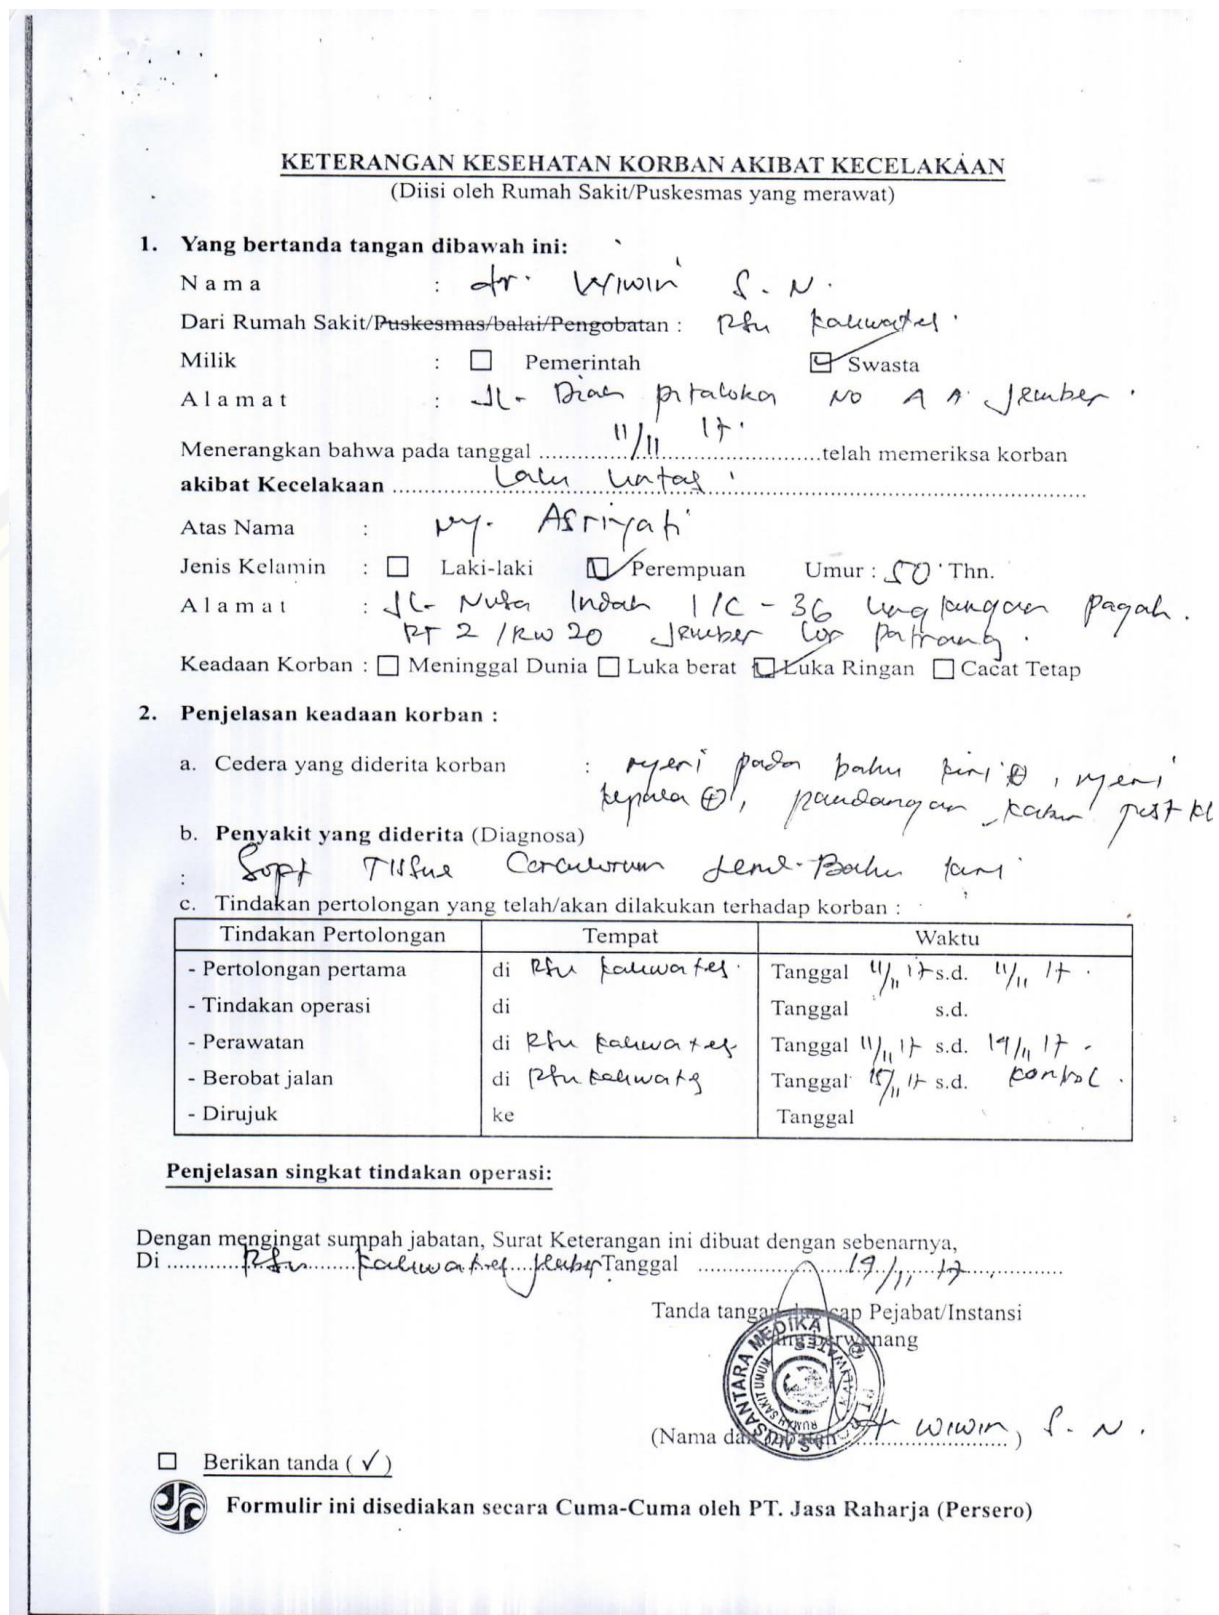 KETERANGAN KESEHATAN KORBAN AKIBAT KECELAKAAN
(Diisi oleh Rumah Sakit/Puskesmas yang merawat)
1. Yang bertanda tangan dibawah ini:
N a m a : dr. Wiwin S. N.
Dari Rumah Sakit/Puskesmas/balai/Pengobatan : RSU Kaliwates.
Milik : ☐ Pemerintah ☑ Swasta
A l a m a t : Jl. Diah Pitaloka No Jember.
Menerangkan bahwa pada tanggal 11/11 17. telah memeriksa korban
akibat Kecelakaan Lalu Lintas
Atas Nama : Ny. Asriyati
Jenis Kelamin : ☐ Laki-laki ☑ Perempuan Umur : 50 Thn.
A l a m a t : Jl. Nusa Indah I/C - 36 Pagah.
RT 2 /RW 20 Jember Lor Patrang.
Keadaan Korban : ☐ Meninggal Dunia ☐ Luka berat ☑ Luka Ringan ☐ Cacat Tetap
2. Penjelasan keadaan korban :
a. Cedera yang diderita korban : nyeri pada bahu kiri ⊕, nyeri
kepala ⊕, pandangan kabur post
b. Penyakit yang diderita (Diagnosa)
: Soft Tissue Bahu
c. Tindakan pertolongan yang telah/akan dilakukan terhadap korban :
Tindakan Pertolongan Tempat Waktu
- Pertolongan pertama di RSU Kaliwates. Tanggal 11/11 17 s.d. 11/11 17.
- Tindakan operasi di Tanggal s.d.
- Perawatan di RSU Kaliwates Tanggal 11/11 17 s.d. 14/11 17.
- Berobat jalan di RSU Kaliwates Tanggal 15/11 17 s.d. kontrol.
- Dirujuk ke Tanggal
Penjelasan singkat tindakan operasi:
Dengan mengingat sumpah jabatan, Surat Keterangan ini dibuat dengan sebenarnya,
Di RSU Kaliwates Jember Tanggal 14/11 17
Tanda tangan Pejabat/Instansi
NUSANTARA MEDIKA
RUMAH SAKIT UMUM
KALIWATES
(Nama Wiwin, S. N. )
☐ Berikan tanda ( ✓ )
Formulir ini disediakan secara Cuma-Cuma oleh PT. Jasa Raharja (Persero)